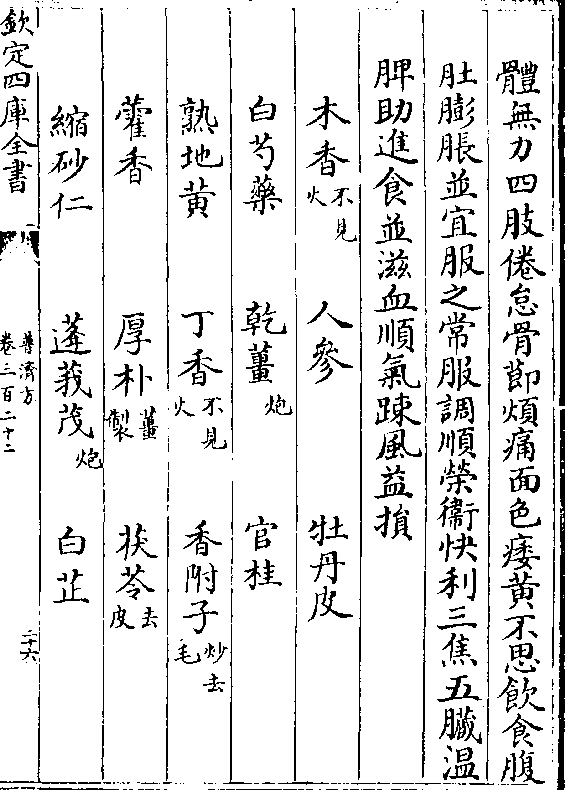 體無力四肢倦怠骨節煩痛面色痿黄不思飲食腹
肚膨脹並宜服之常服調順榮衞快利三焦五臟温
脾助進食並滋血順氣踈風益損
木香不見火 人參 牡丹皮
白芍藥 乾薑炮 官桂
熟地黄 丁香不見火 香附子炒去毛
藿香 厚朴薑製 茯苓去皮
縮砂仁 蓬莪茂炮 白芷
欽定四庫全書
普濟方
卷三百二十二
二十六